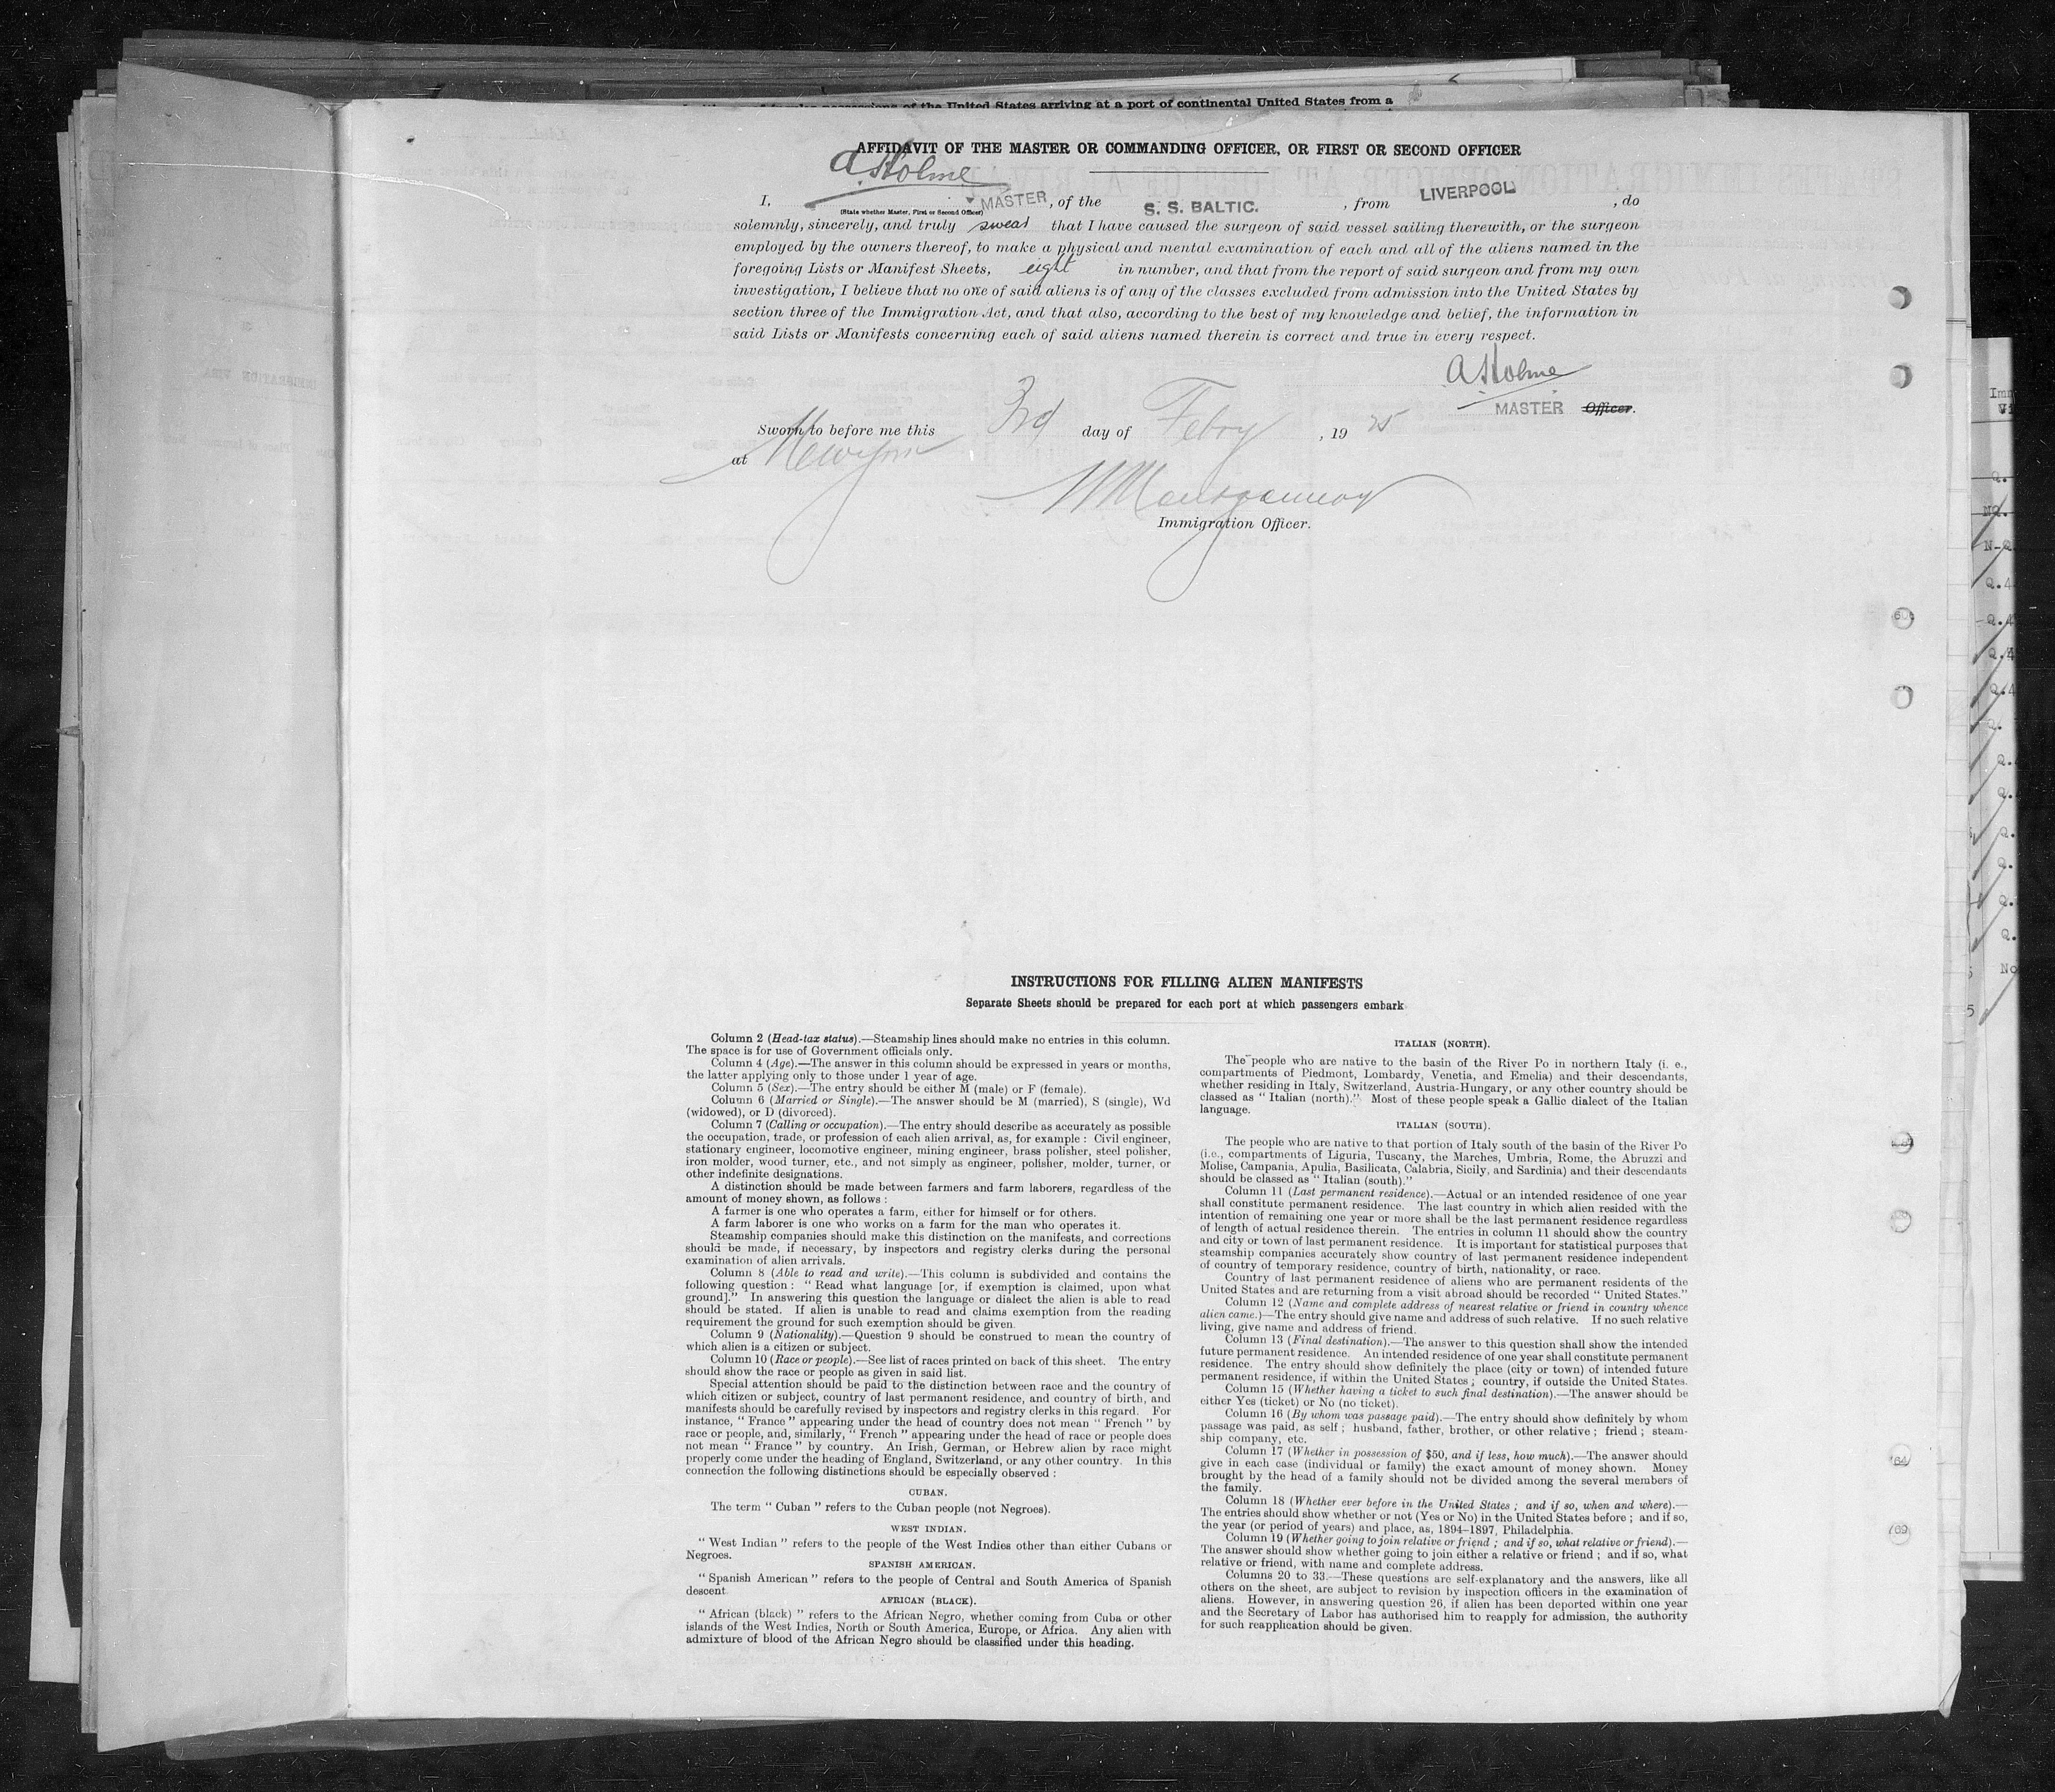 possessions of the United States arriving at a port of continental United States from a
AFFIDAVIT OF THE MASTER OR COMMANDING OFFICER, OR FIRST OR SECOND OFFICER
A. Holme
I, MASTER, of the S. S. BALTIC. , from LIVERPOOL , do
(State whether Master, First or Second Officer)
solemnly, sincerely, and truly swear that I have caused the surgeon of said vessel sailing therewith, or the surgeon
employed by the owners thereof, to make a physical and mental examination of each and all of the aliens named in the
foregoing Lists or Manifest Sheets, eight in number, and that from the report of said surgeon and from my own
investigation, I believe that no one of said aliens is of any of the classes excluded from admission into the United States by
section three of the Immigration Act, and that also, according to the best of my knowledge and belief, the information in
said Lists or Manifests concerning each of said aliens named therein is correct and true in every respect.
A Holme
MASTER Officer.
Sworn to before me this 3rd day of Febry , 19 25
at
Immigration Officer.
INSTRUCTIONS FOR FILLING ALIEN MANIFESTS
Separate Sheets should be prepared for each port at which passengers embark
Column 2 (Head-tax status).—Steamship lines should make no entries in this column.
The space is for use of Government officials only.
Column 4 (Age).—The answer in this column should be expressed in years or months,
the latter applying only to those under 1 year of age.
Column 5 (Sex).—The entry should be either M (male) or F (female).
Column 6 (Married or Single).—The answer should be M (married), S (single), Wd
(widowed), or D (divorced).
Column 7 (Calling or occupation).—The entry should describe as accurately as possible
the occupation, trade, or profession of each alien arrival, as, for example : Civil engineer,
stationary engineer, locomotive engineer, mining engineer, brass polisher, steel polisher,
iron molder, wood turner, etc., and not simply as engineer, polisher, molder, turner, or
other indefinite designations.
A distinction should be made between farmers and farm laborers, regardless of the
amount of money shown, as follows :
A farmer is one who operates a farm, either for himself or for others.
A farm laborer is one who works on a farm for the man who operates it.
Steamship companies should make this distinction on the manifests, and corrections
should be made, if necessary, by inspectors and registry clerks during the personal
examination of alien arrivals.
Column 8 (Able to read and write).—This column is subdivided and contains the
following question : “ Read what language [or, if exemption is claimed, upon what
ground].” In answering this question the language or dialect the alien is able to read
should be stated. If alien is unable to read and claims exemption from the reading
requirement the ground for such exemption should be given.
Column 9 (Nationality).—Question 9 should be construed to mean the country of
which alien is a citizen or subject.
Column 10 (Race or people).—See list of races printed on back of this sheet. The entry
should show the race or people as given in said list.
Special attention should be paid to the distinction between race and the country of
which citizen or subject, country of last permanent residence, and country of birth, and
manifests should be carefully revised by inspectors and registry clerks in this regard. For
instance, “ France ” appearing under the head of country does not mean “ French ” by
race or people, and, similarly, “ French ” appearing under the head of race or people does
not mean “ France ” by country. An Irish, German, or Hebrew alien by race might
properly come under the heading of England, Switzerland, or any other country. In this
connection the following distinctions should be especially observed :
CUBAN.
The term “ Cuban ” refers to the Cuban people (not Negroes).
WEST INDIAN.
“ West Indian ” refers to the people of the West Indies other than either Cubans or
Negroes.
SPANISH AMERICAN.
“ Spanish American ” refers to the people of Central and South America of Spanish
descent
AFRICAN (BLACK).
“ African (black) ” refers to the African Negro, whether coming from Cuba or other
islands of the West Indies, North or South America, Europe, or Africa. Any alien with
admixture of blood of the African Negro should be classified under this heading.
ITALIAN (NORTH).
The people who are native to the basin of the River Po in northern Italy (i. e.,
compartments of Piedmont, Lombardy, Venetia, and Emelia) and their descendants,
whether residing in Italy, Switzerland, Austria-Hungary, or any other country should be
classed as “ Italian (north).” Most of these people speak a Gallic dialect of the Italian
language.
ITALIAN (SOUTH).
The people who are native to that portion of Italy south of the basin of the River Po
(i.e., compartments of Liguria, Tuscany, the Marches, Umbria, Rome, the Abruzzi and
Molise, Campania, Apulia, Basilicata, Calabria, Sicily, and Sardinia) and their descendants
should be classed as “ Italian (south).”
Column 11 (Last permanent residence).—Actual or an intended residence of one year
shall constitute permanent residence. The last country in which alien resided with the
intention of remaining one year or more shall be the last permanent residence regardless
of length of actual residence therein. The entries in column 11 should show the country
and city or town of last permanent residence. It is important for statistical purposes that
steamship companies accurately show country of last permanent residence independent
of country of temporary residence, country of birth, nationality, or race.
Country of last permanent residence of aliens who are permanent residents of the
United States and are returning from a visit abroad should be recorded “ United States.”
Column 12 (Name and complete address of nearest relative or friend in country whence
alien came.)—The entry should give name and address of such relative. If no such relative
living, give name and address of friend.
Column 13 (Final destination).—The answer to this question shall show the intended
future permanent residence. An intended residence of one year shall constitute permanent
residence. The entry should show definitely the place (city or town) of intended future
permanent residence, if within the United States ; country, if outside the United States.
Column 15 (Whether having a ticket to such final destination).—The answer should be
either Yes (ticket) or No (no ticket).
Column 16 (By whom was passage paid).—The entry should show definitely by whom
passage was paid, as self ; husband, father, brother, or other relative ; friend ; steam-
ship company, etc.
Column 17 (Whether in possession of $50, and if less, how much).—The answer should
give in each case (individual or family) the exact amount of money shown. Money
brought by the head of a family should not be divided among the several members of
the family.
Column 18 (Whether ever before in the United States ; and if so, when and where).—
The entries should show whether or not (Yes or No) in the United States before ; and if so,
the year (or period of years) and place, as, 1894–1897, Philadelphia.
Column 19 (Whether going to join relative or friend ; and if so, what relative or friend).—
The answer should show whether going to join either a relative or friend ; and if so, what
relative or friend, with name and complete address.
Columns 20 to 33.—These questions are self-explanatory and the answers, like all
others on the sheet, are subject to revision by inspection officers in the examination of
aliens. However, in answering question 26, if alien has been deported within one year
and the Secretary of Labor has authorised him to reapply for admission, the authority
for such reapplication should be given.